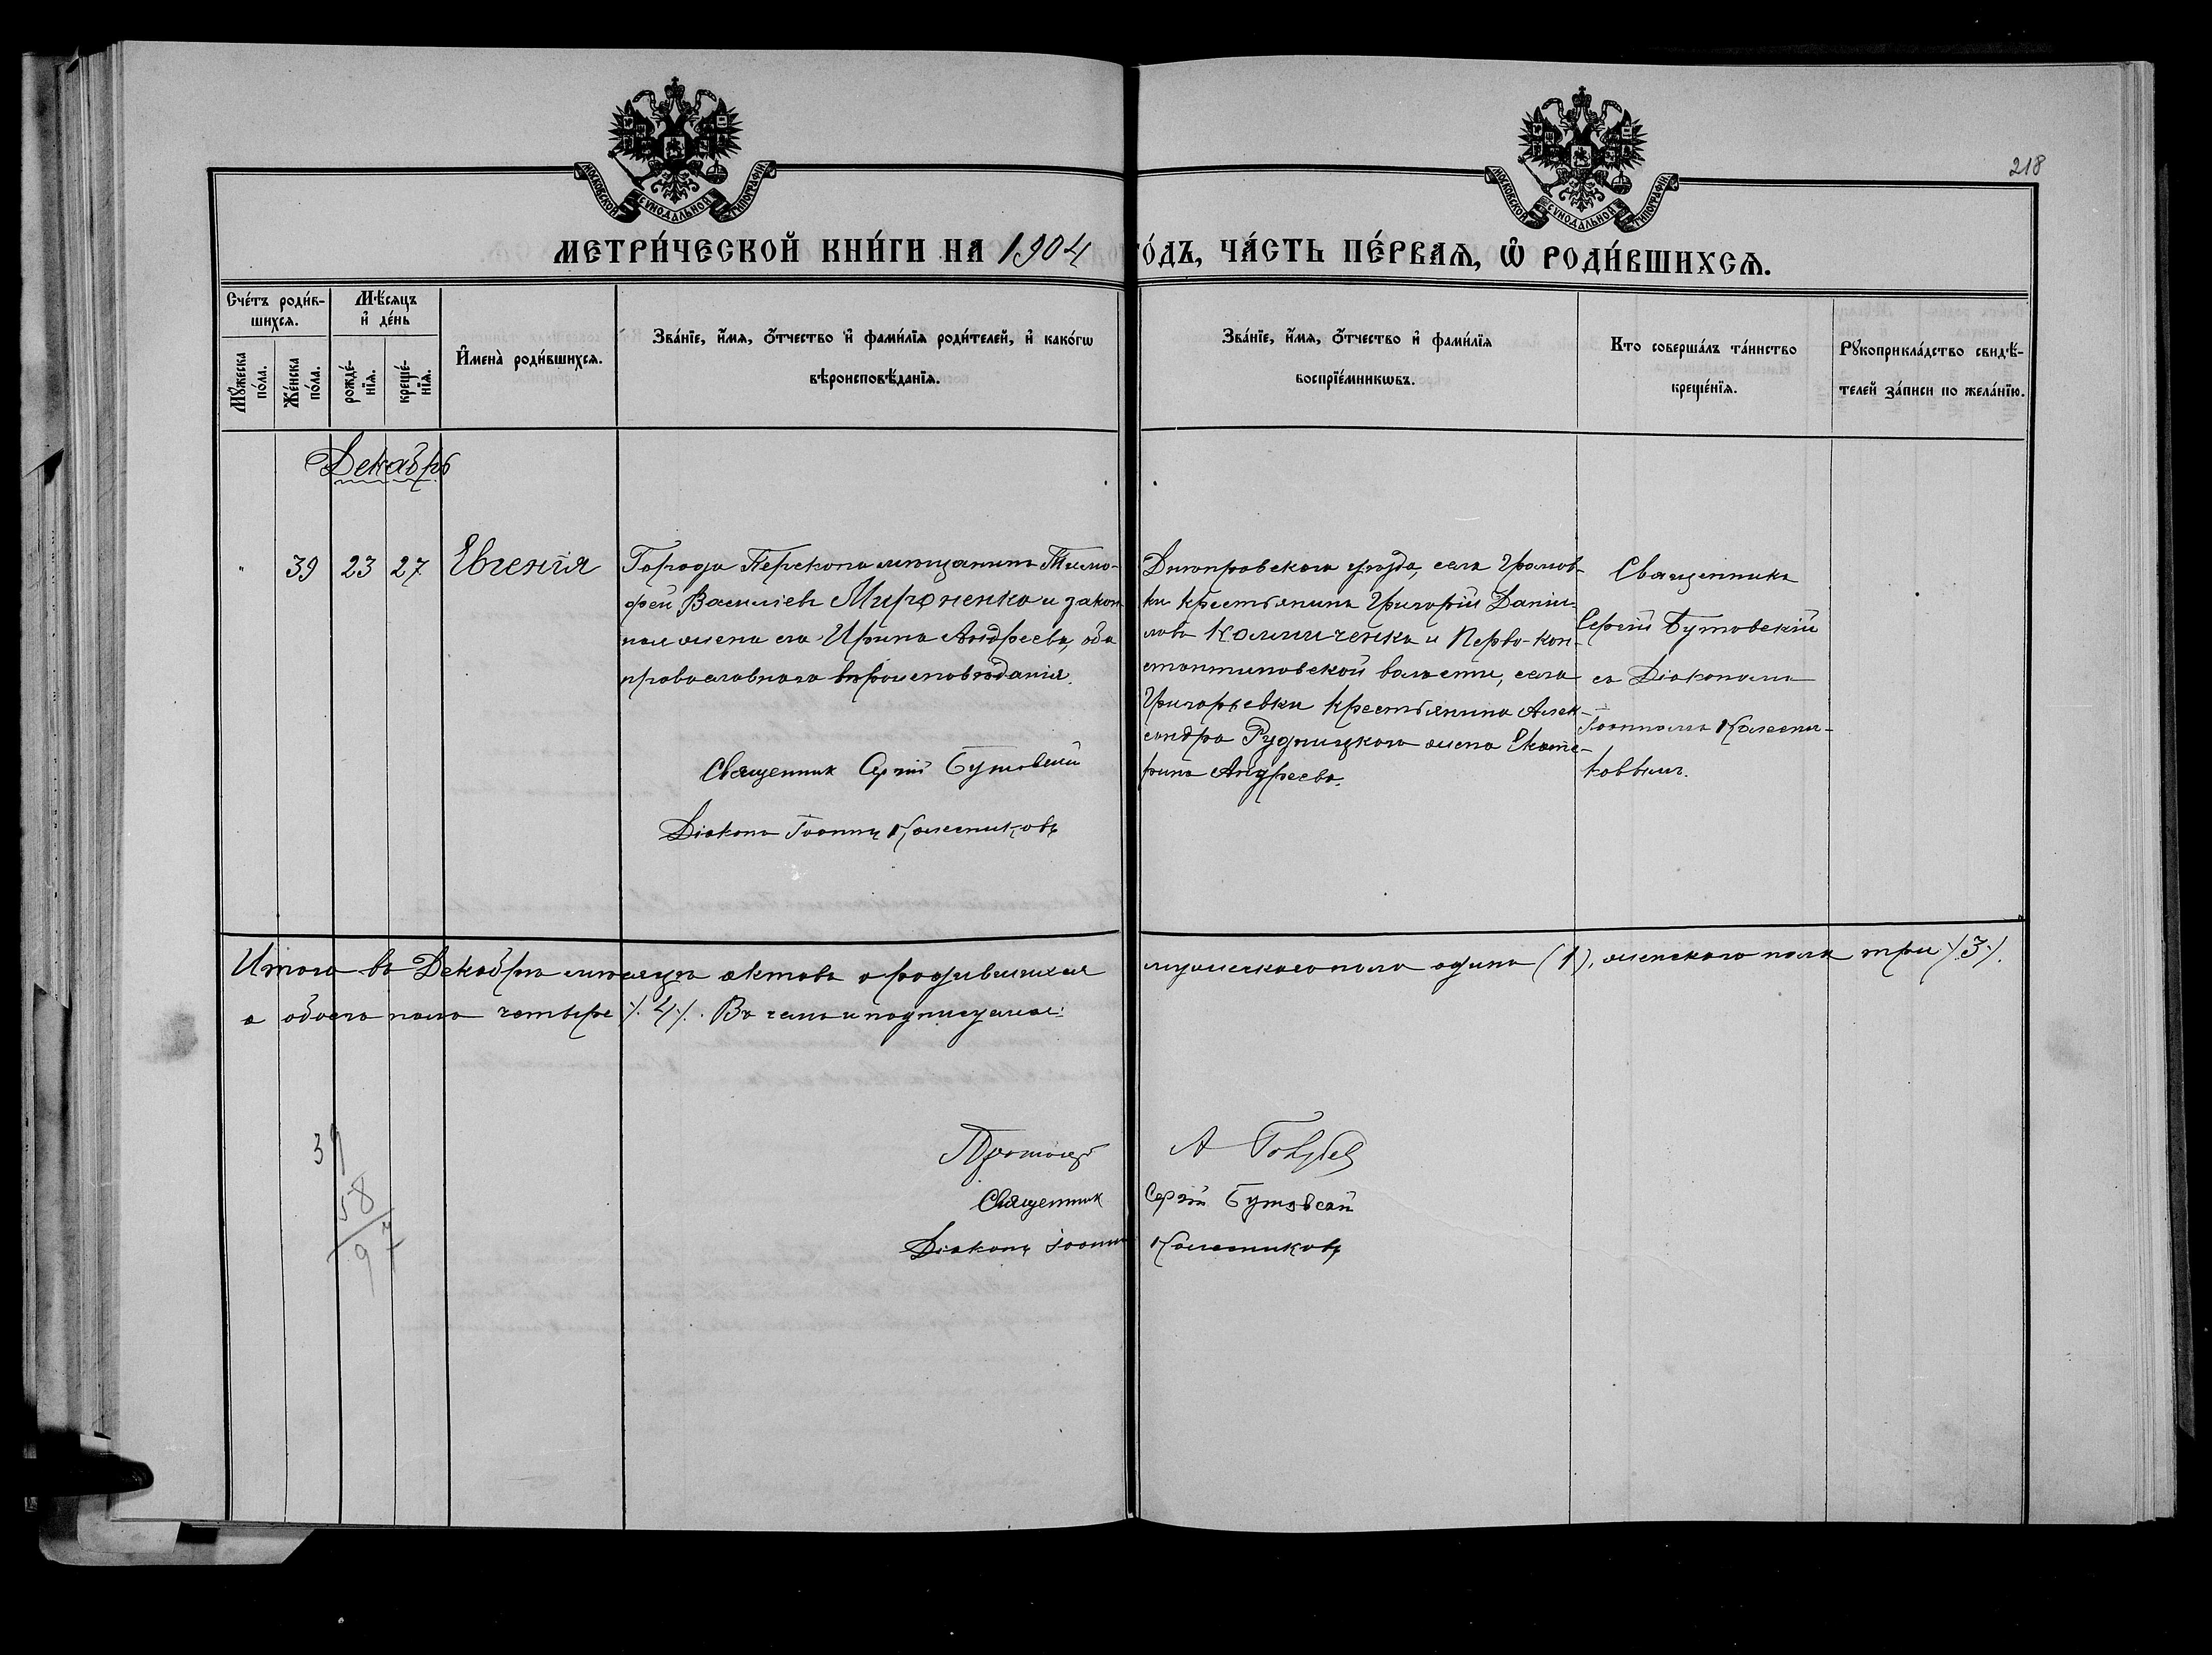 218
МОСКОВСКОЙ СѴНОДАЛЬНОЙ ТИПОГРАФІИ
МОСКОВСКОЙ СѴНОДАЛЬНОЙ ТИПОГРАФІИ
МЕТРИ́ЧЕСКОЙ КНИ́ГИ НА 1904
ГО́ДЪ, ЧА́СТЬ ПЕ́РВАѦ, Ѡ҆ РОДИ́ВШИХСѦ.
Сче́тъ роди́в-
шихсѧ.
Мꙋ́жеска по́ла.
Же́нска по́ла.
Мѣ́сѧцъ
и҆ де́нь
рожде́-
нїѧ.
креще́-
нїѧ.
И҆мена̀ роди́вшихсѧ.
Зва́нїе, и҆́мѧ, ѻ҆́тчество и҆ фами́лїѧ роди́телей, и҆ како́гѡ
вѣроисповѣ́данїѧ.
Зва́нїе, и҆́мѧ, ѻ҆́тчество и҆ фами́лїѧ
воспрїе́мникѡвъ.
Кто соверша́лъ та́инство
креще́нїѧ.
Рꙋкоприкла́дство свидѣ́-
телей за́писи по жела́нїю.
Декабрь
" 39 23 27 Евгенія
Города Перекопа мѣщанинъ Тимо-
фей Васильевъ Мироненко и закон-
ная жена его Ирина Андреева, оба
православнаго вѣроисповѣданія.
Священник Сергій Бутовский
Діаконъ Іоаннъ Колесниковъ
Днѣпровскаго уѣзда, села Громов-
ки крестьянинъ Григорій Дани-
ловъ Калниченко и Перво-кон-
стантиновской волости, села
Григорьевки крестьянина Алек-
сандра Рудницкаго жена Екате-
рина Андреева.
Священникъ
Сергій Бутовскій
съ Діакономъ
Іоанномъ Колесни-
ковымъ.
Итого въ Декабрѣ мѣсяцѣ актовъ о родившихся
мужескаго пола одинъ (1), женскаго пола три ⁒3⁒.
а обоего пола четыре ⁒4⁒. Въ чемъ и подписуемся:
39
58
97
Протоіер
А Голубев
Священник
Сергій Бутовский
Діаконъ Іоаннъ
Колесниковъ